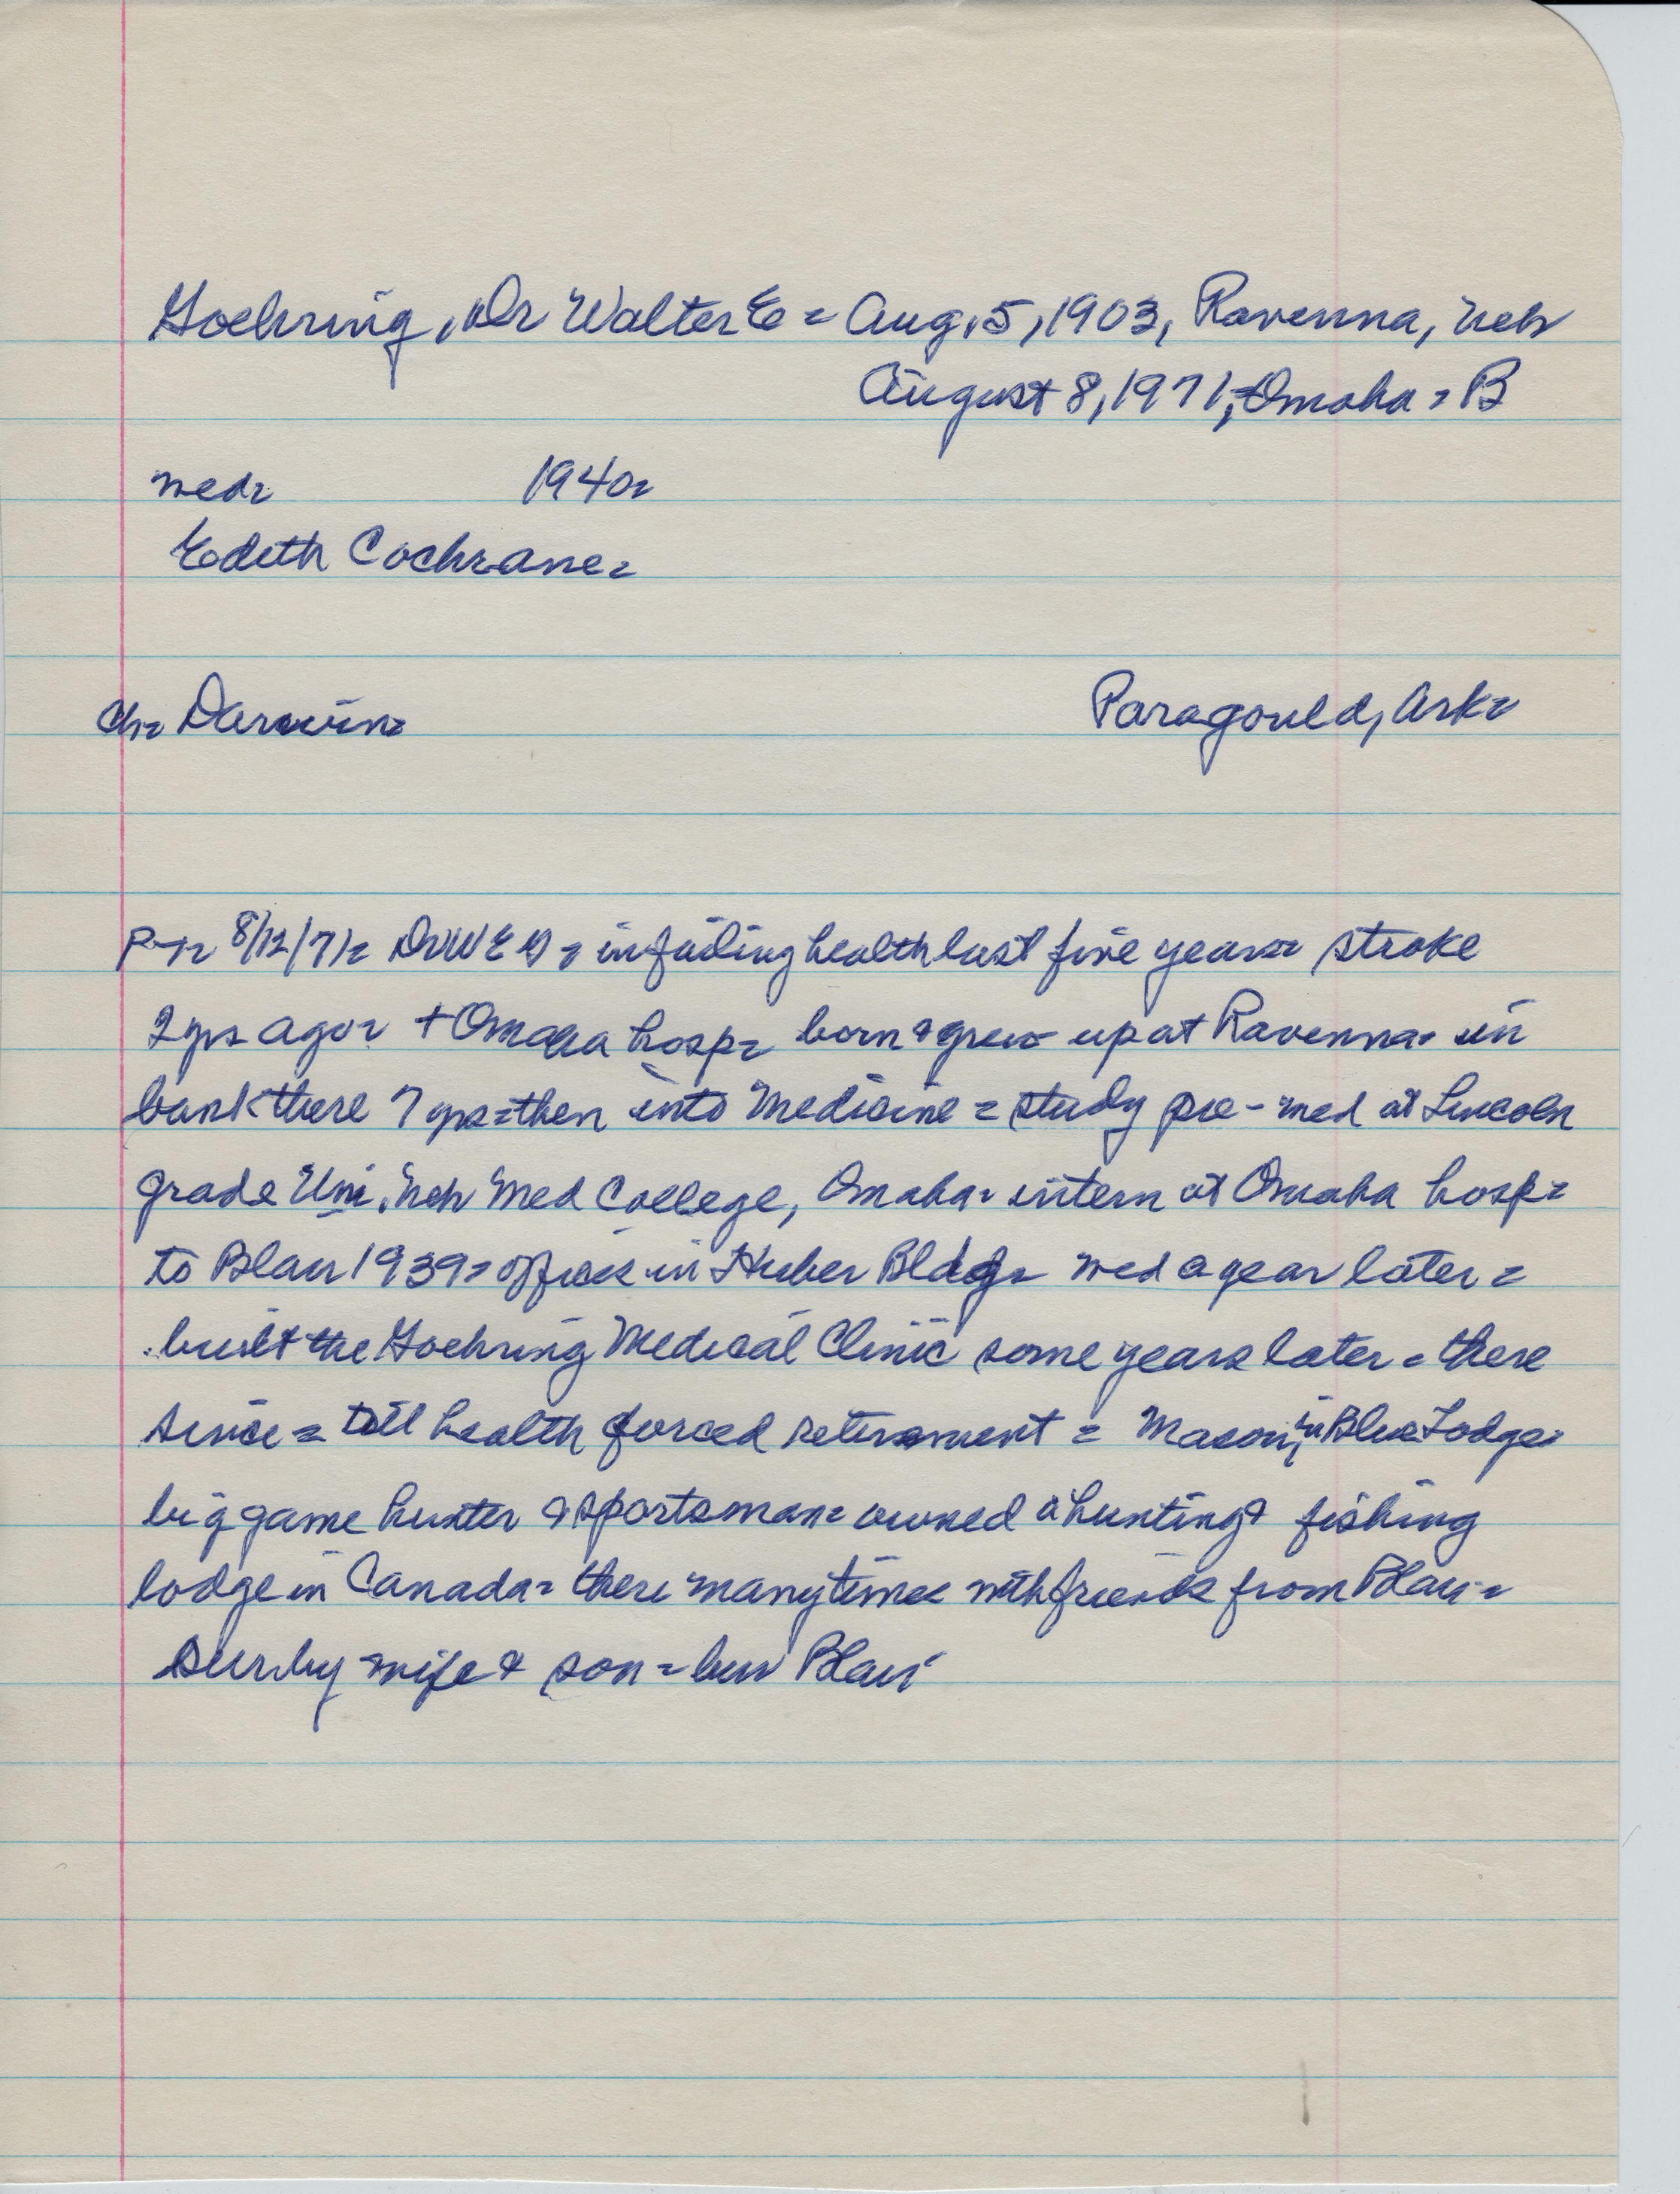 Goehring, Dr Walter E = Aug. 5, 1903, Ravenna, Neb
August 8, 1971, = Omaha = B
wed = 1940 =
Edith Cochrane =
ch = Darwin = Paragould, Ark =
P-T = 8/12/71 = Dr W E G = in failing health last five years = stroke
2 yrs ago = + Omaha hosp = born & grew up at Ravenna = in
bank there 7 yrs = then into Medicine = study pre-med at Lincoln
grade Uni. Neb Med College, Omaha = intern at Omaha hosp =
to Blair 1939 = offices in Huber Bldg = wed a year later =
built the Goehring Medical Clinic some years later = there
since = till health forced retirement = Mason, in Blue Lodge =
big game hunter & sportsman = owned a hunting & fishing
lodge in Canada = there many times with friends from Blair =
Surv by wife & son = bur Blair